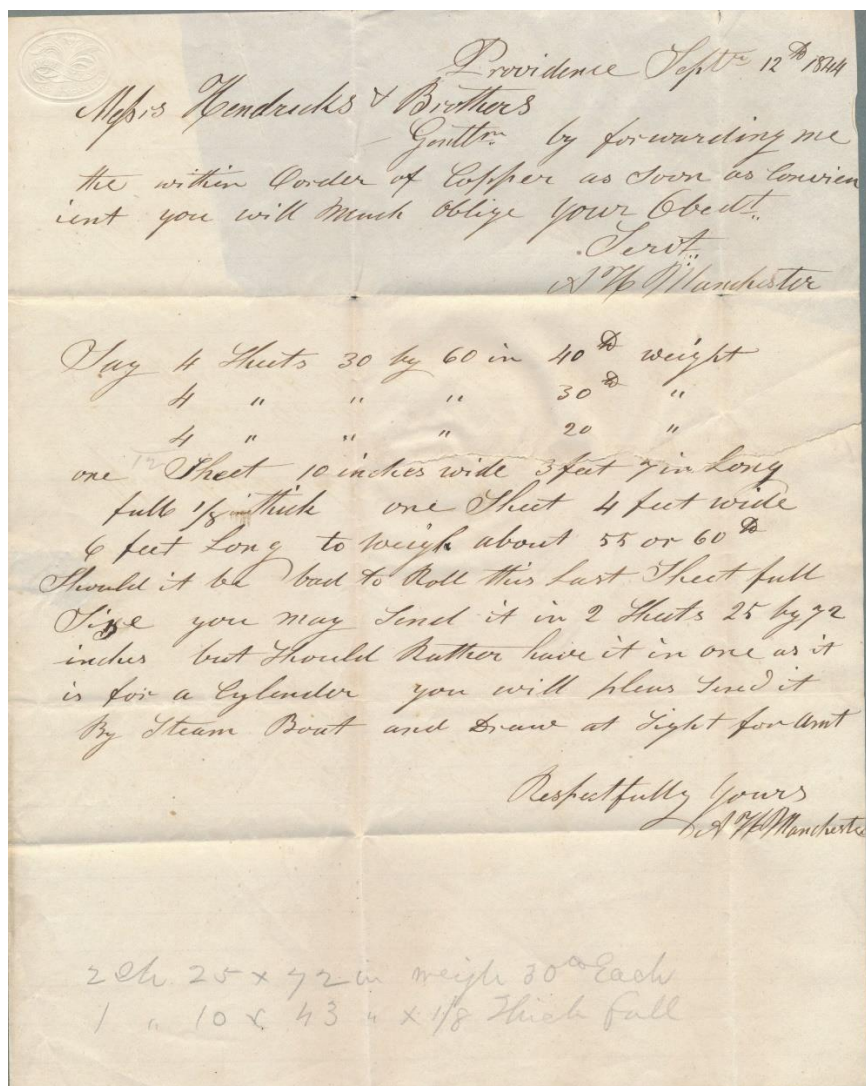 Providence Septr 12th 1844
Messrs Hendricks & Brothers
Gentlmn by forwarding me
the within Oorder of Copper as Soon as Convien
ient you will Much oblige your Obedt
Servt
A H Manchester
Say 4 Sheets 30 by 60 in 40 lb weight
4 " " " 30 lb "
4 " " " 20 "
one Sheet 10 inches wide 3 feet 7 in Long
full 1/8 in thick one Sheet 4 feet wide
6 feet Long to weigh about 55 or 60 lb
Should it be bad to Roll this Last Sheet full
Size you may Send it in 2 Sheets 25 by 72
inches but Should Rather have it in one as it
is for a Cylender you will pleas Send it
By Steam Boat and Draw at Sight for Amt
Respectfully Yours
A H Manchester
2 Sh 25 x 72 in weigh 30 lb Each
1 " 10 x 43 " x 1/8 Thick full